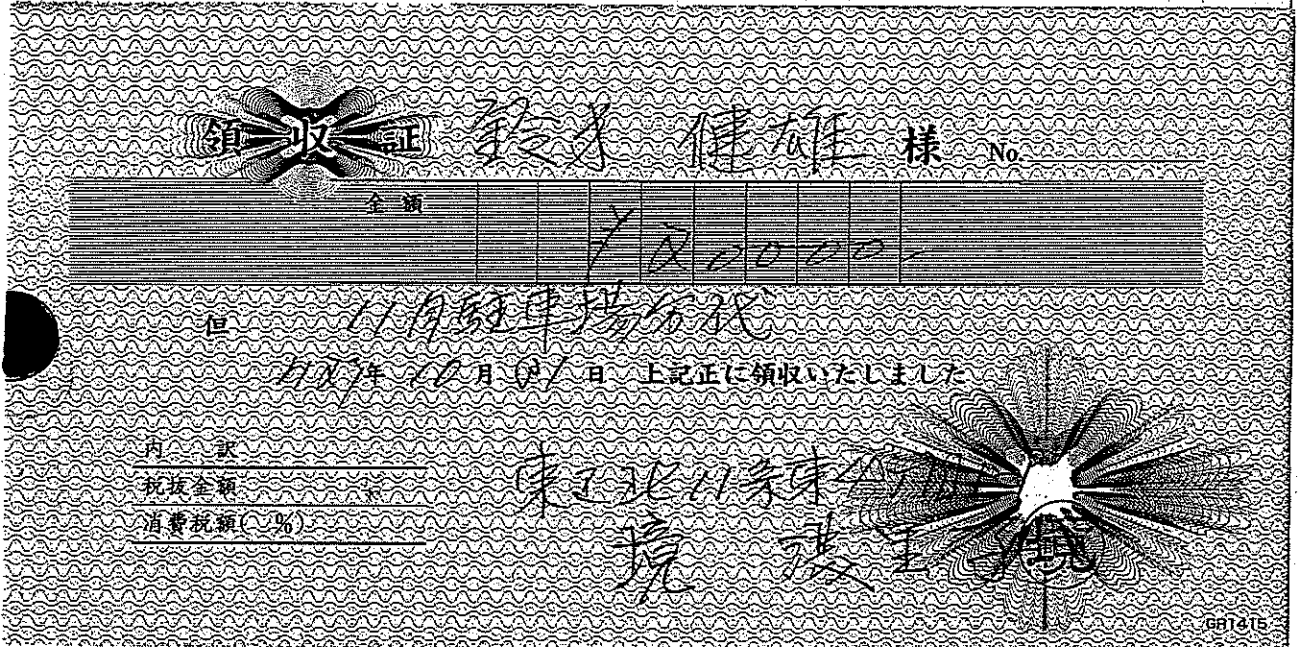 領収証 鈴木 健雄 様 No.
金額
¥20000-
但 11月駐車場分代
年 10月21日 上記正に領収いたしました
内 訳
税抜金額
消費税額( %)
東区北11条東
境
境
GR1415